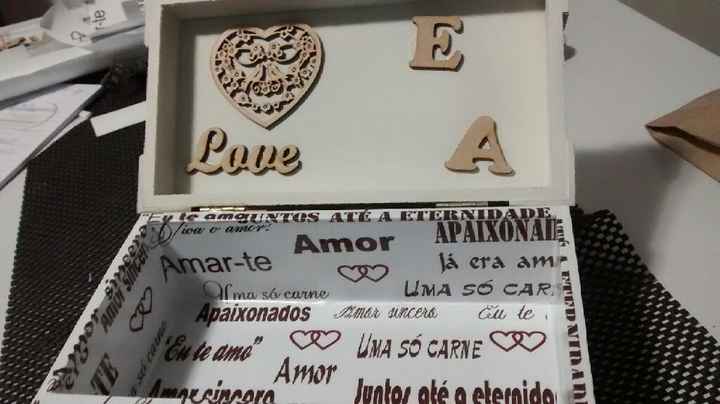 E
Love
A
"Eu te amo
JUNTOS ATÉ A ETERNIDADE
Viva o amor!
Amor
Amar-te
Já era am
Uma só carne
UMA SÓ CAR
Amor sincero
Apaixonados
Amor sincero
Eu te
"Eu te amo"
UMA SÓ CARNE
Amor
Amor sincero
Juntos até a eternida